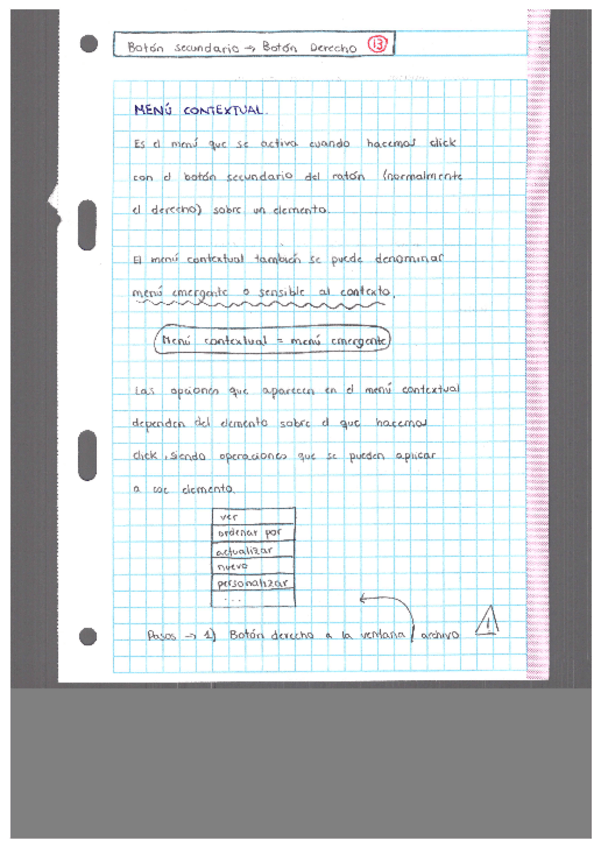 Botón secundario → Botón Derecho 13
MENÚ CONTEXTUAL.
Es el menú que se activa cuando hacemos click
con el botón secundario del ratón (normalmente
el derecho) sobre un elemento.
El menú contextual también se puede denominar
menú emergente o sensible al contexto.
Menú contextual = menú emergente
Las opciones que aparecen en el menú contextual
dependen del elemento sobre el que hacemos
click, siendo operaciones que se pueden aplicar
a ese elemento.
ver
ordenar por
actualizar
nuevo
personalizar
...
Pasos → 1) Botón derecho a la ventana / archivo !